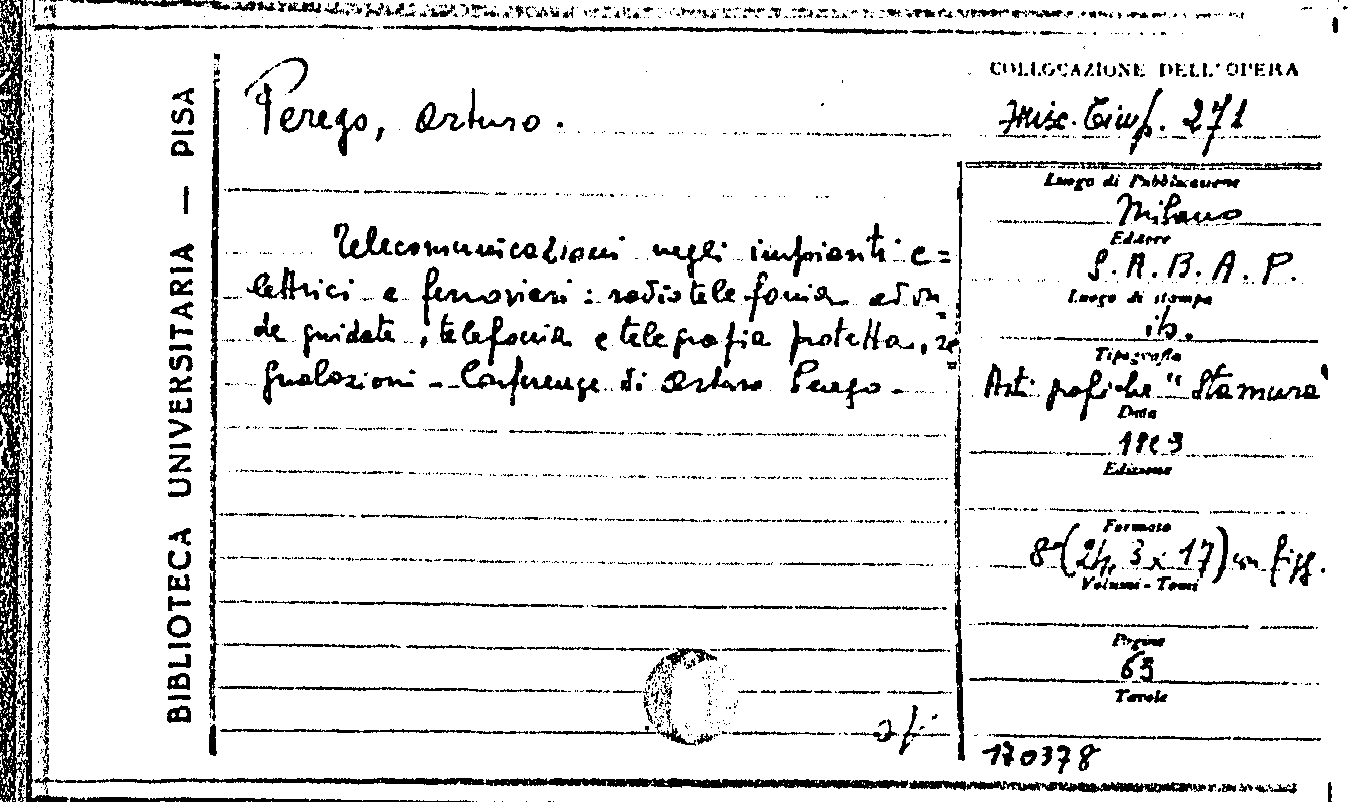 BIBLIOTECA UNIVERSITARIA — PISA
Perego, Arturo.
Telecomunicazioni negli impianti e=
lettrici e ferroviari: radiotelefonia ad on=
de guidate, telefonia e telegrafia protetta, se=
gnalazioni - Conferenze di Arturo Perego -
COLLOCAZIONE DELL'OPERA
Misc. Cinf. 271
Luogo di Pubblicazione
Milano
Editore
S. A. B. A. P.
Luogo di stampa
ib.
Tipografia
Arti grafiche "Stamura"
Data
Edizione
Formato
8° (24, 3 x 17) con figg.
Volumi - Tomi
Pagine
63
Tavole
170378